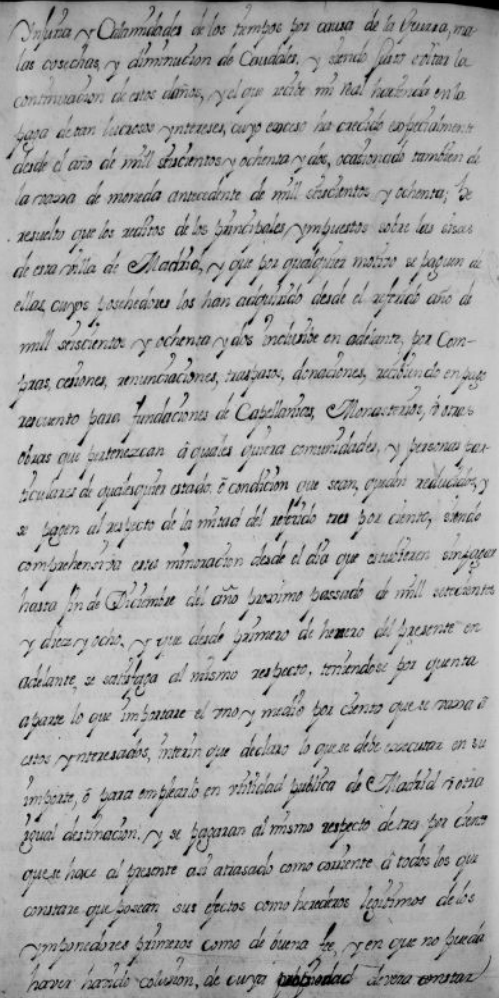 Injuria y Calamidades de los tiempos por causa de la Guerra, ma-
las cosechas, y diminucion de Caudales, y siendo justo evitar la
continuacion de estos daños, y el que recibe mi Real hacienda en la
paga de tan lucrosos yntereses, cuyo exceso ha crecido especialmente
desde el año de mill seiscientos y ochenta y dos, ocasionado tambien de
la vaxa de moneda antecedente de mill seiscientos y ochenta; he
resuelto que los reditos de los principales, ympuestos sobre las sisas
de esta villa de Madrid, y que por qualquier motivo se paguen de
ellas, cuyos posehedores los han adquirido desde el referido año de
mill seiscientos y ochenta y dos inclusibe en adelante, por Com-
pras, cesiones, renunciaciones, traspasos, donaciones, recibiendo en pago
rescuento para fundaciones de Capellanias, Monasterios, ò otras
obras que pertenezcan â quales quiera comunidades, y personas par-
ticulares de qualesquier estado, ò condicion que sean, queden reducidos, y
se pagen al respecto de la mitad del referido tres por ciento, siendo
comprehensiva esta minoracion desde el dia que estubieren sin pagar
hasta fin de Diciembre del año proximo passado de mill setecientos
y diez y ocho, y que desde primero de henero del presente en
adelante, se satisfaga al mismo respecto, teniendose por quenta
aparte lo que importare el vno y medio por ciento que se vaxa â
estos ynteresados, interin que declaro lo que se debe executar en su
importe, ò para emplearlo en vtilidad publica de Madrid ò otra
igual destinacion. y se pagaran al mismo respecto de tres por ciento
que se hace al presente asi atrasado como corriente â todos los que
constare que posean sus efectos como herederos legitimos de los
ymponedores primeros como de buena fee, y en que no pueda
haver havido colusion, de cuya propiedad devera constar